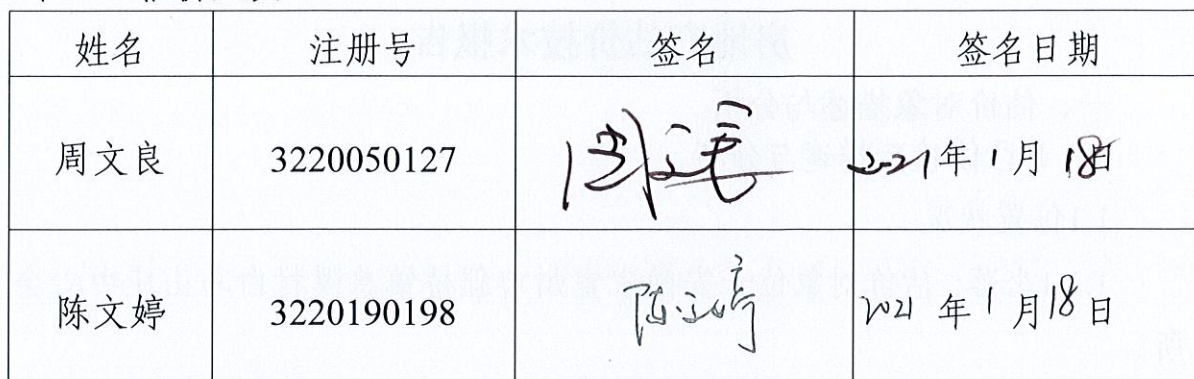 姓名 注册号 签名 签名日期
周文良 3220050127 周文良 2021年1月18日
陈文婷 3220190198 陈文婷 2021年1月18日